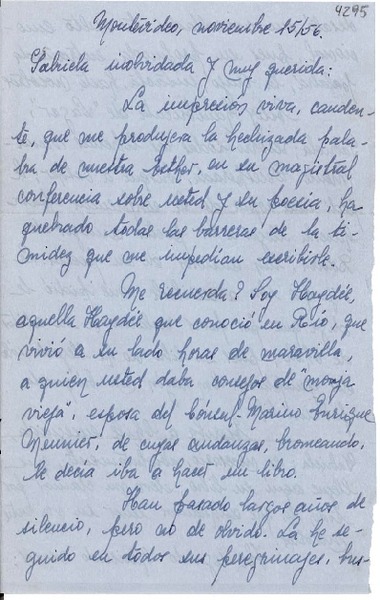 4295
Montevideo, noviembre 15/56.
Gabriela inolvidada y muy querida:
La impresión viva, canden-
te, que me produjera la hechizada pala-
bra de nuestra Esther, en su magistral
conferencia sobre usted y su poesía, ha
quebrado todas las barreras de la ti-
midez que me impedían escribirle.
Me recuerda? Soy Haydée,
aquella Haydée que conoció en Río, que
vivió a su lado horas de maravilla,
a quien usted daba consejos de "monja
vieja", esposa del Cónsul-Marino Enrique
de cuyas andanzas, bromeando,
le decía iba a hacer un libro.
Han pasado largos años de
silencio, pero no de olvido. La he se-
guido en todos sus peregrinajes, bus-